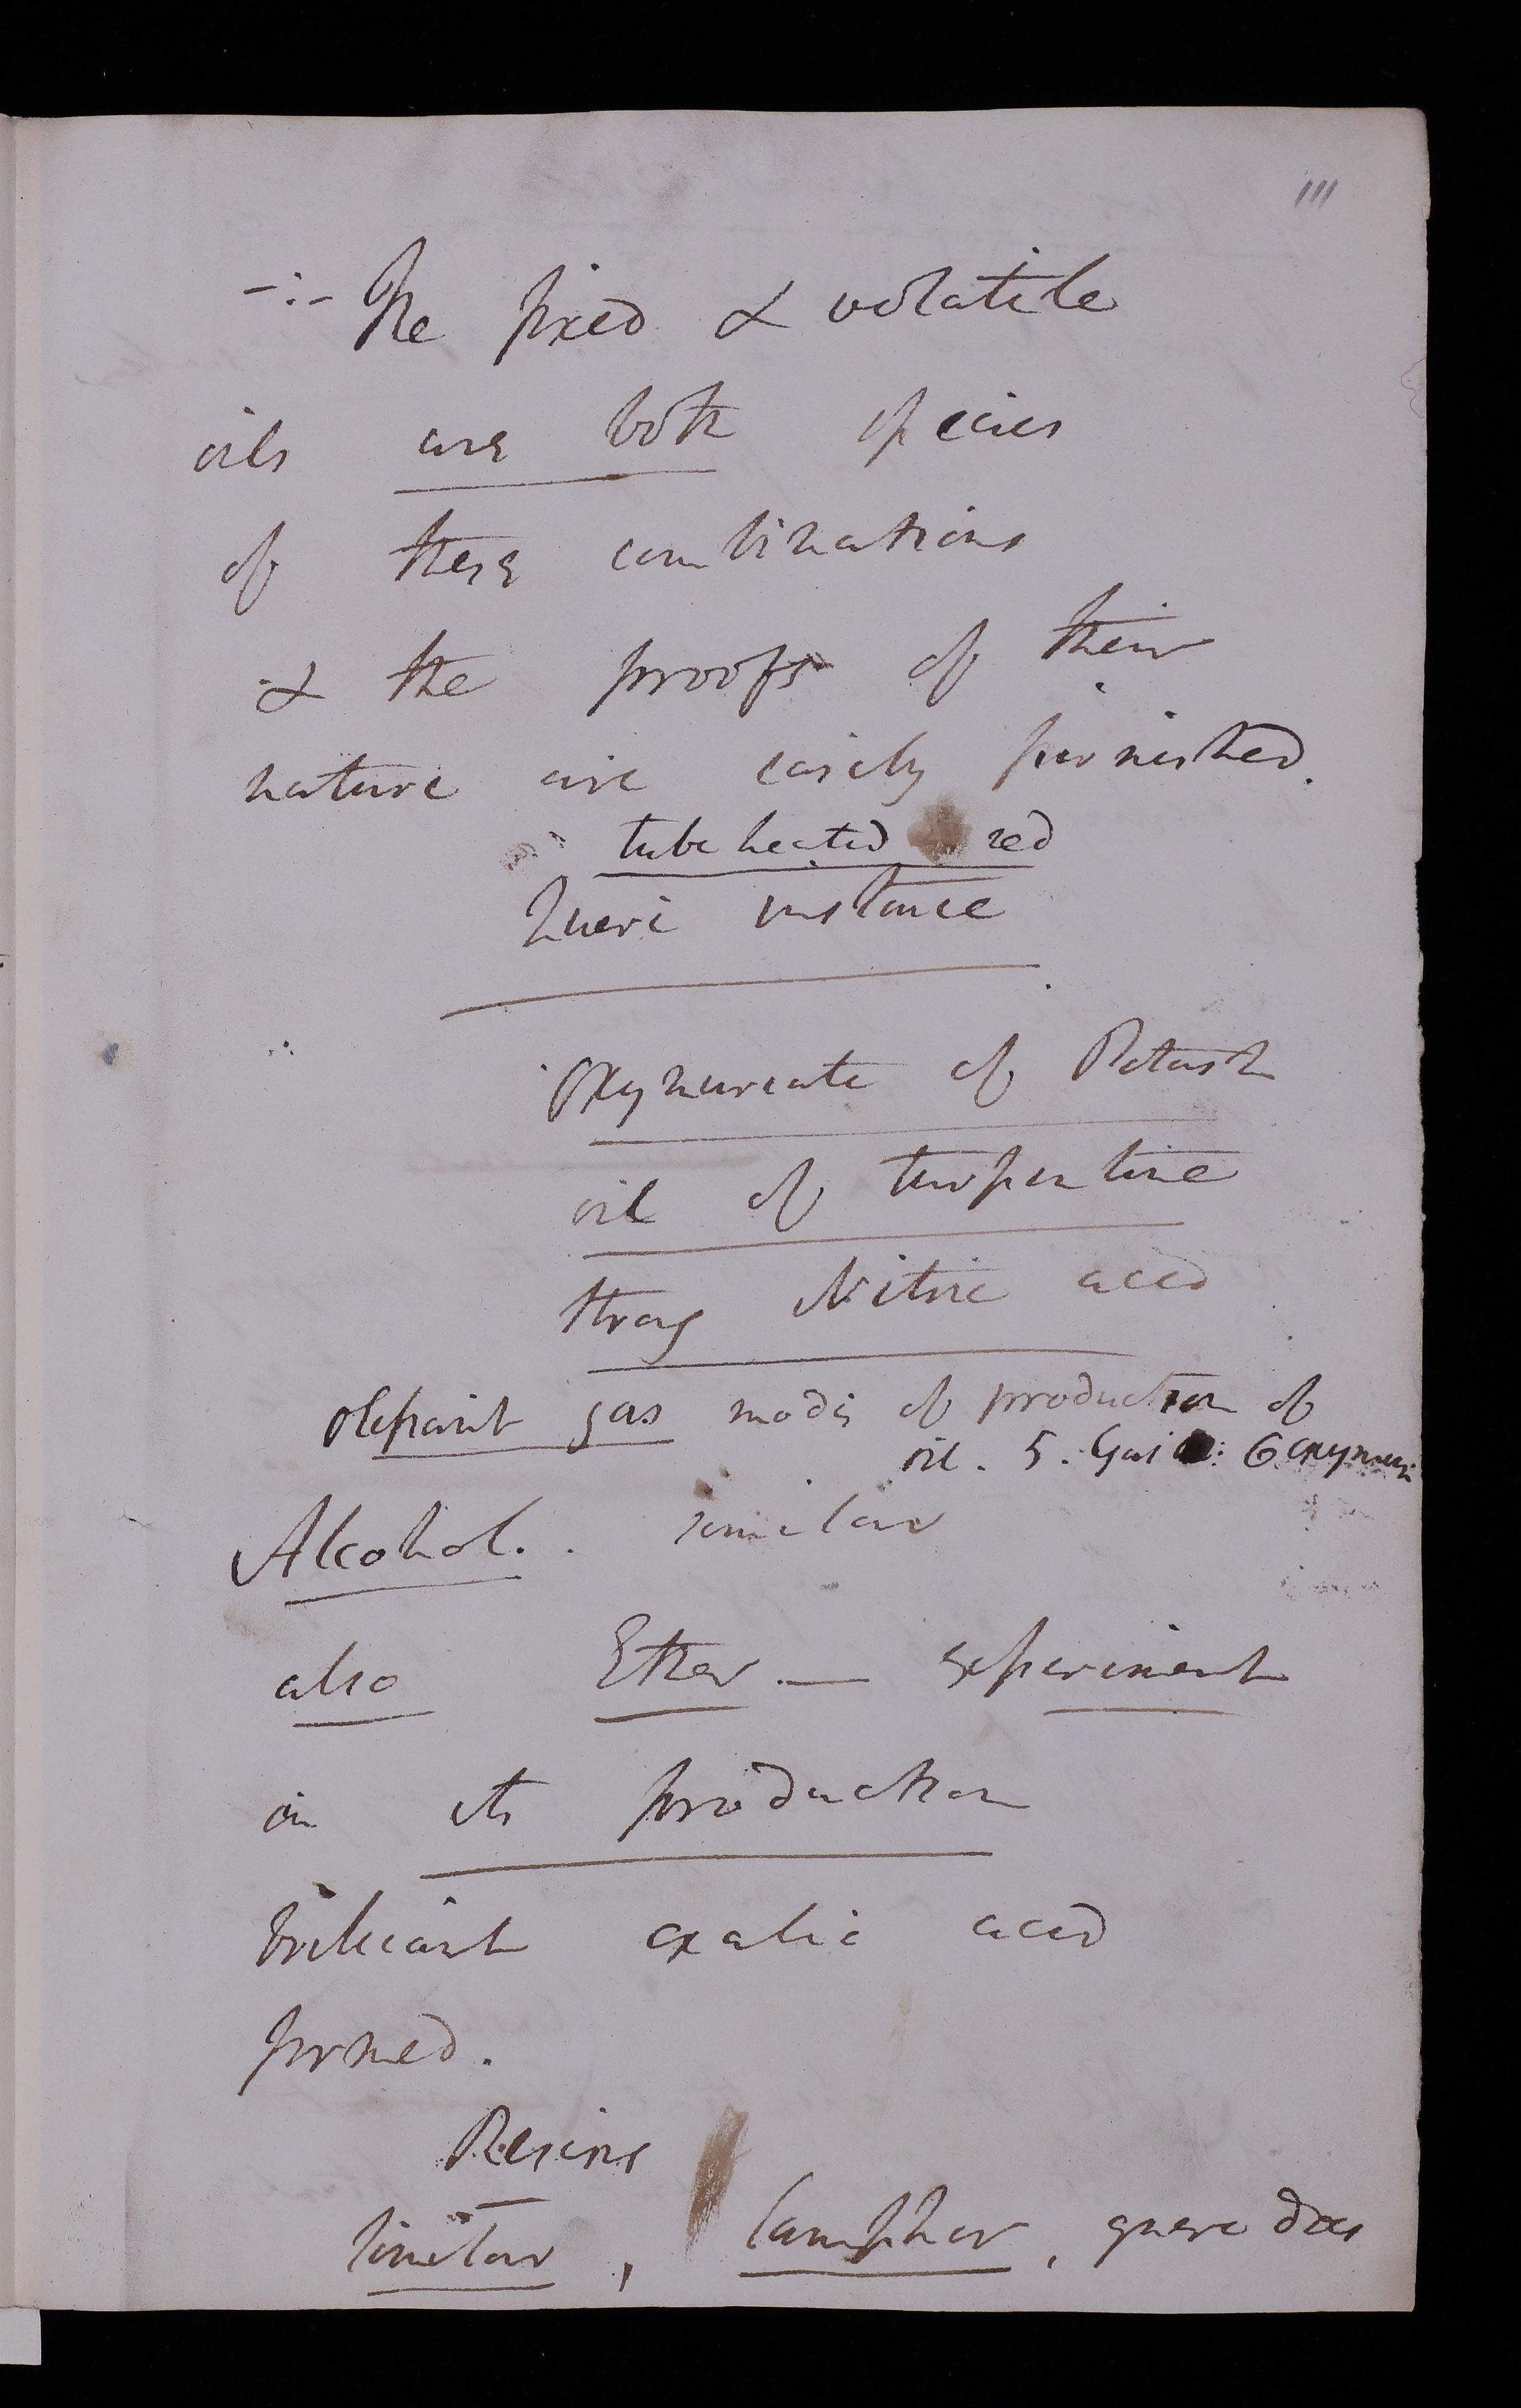 111
-:- The fixed & volatile
oils are both species
of these combinations
& the proofs of their
nature are easily furnished.
tube heated red
instance
Oxymuriate of Potash
oil of turpentine
strong Nitric acid
Olefiant gas mode of production of
oil. 5. Gas 6 oxymur:
Alcohol. . similar
also Ether — experiment
in its production
brilliant oxalic acid
formed.
Resins
similar, Camphor, quere does